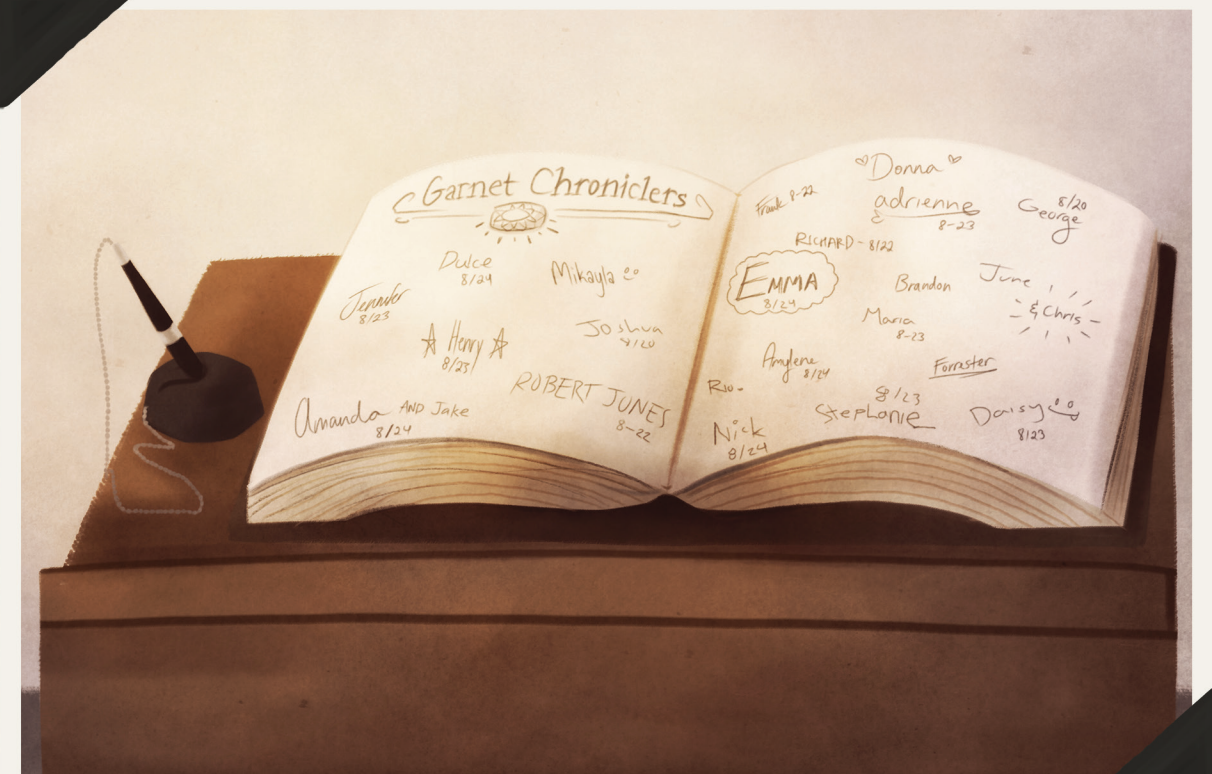 Garnet Chroniclers
Dulce
8/24
Mikayla
Jennifer
8/23
Henry
8/23
Joshua
8/20
ROBERT JONES
8-22
Amanda AND Jake
8/24
Donna
Frank 8-22
adrienne
8-23
8/20
George
RICHARD - 8/22
EMMA
8/24
Brandon
June
& Chris
Maria
8-23
Amylene
8/24
Forrester
Rio-
8/23
Stephanie
Daisy
8/23
Nick
8/24